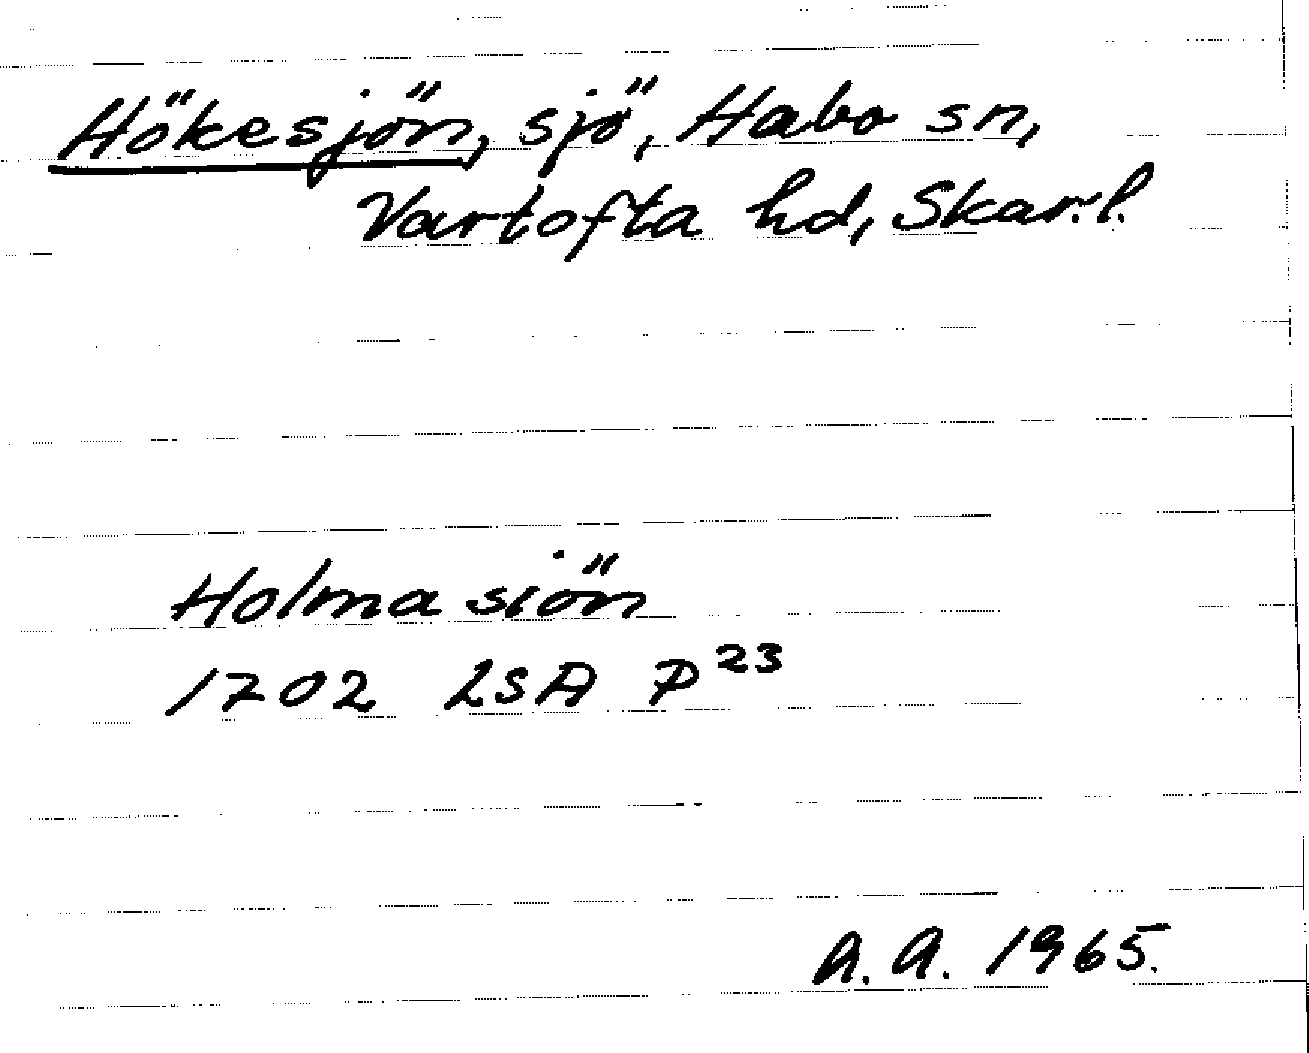 Hökesjön, sjö, Habo sn,
Vartofta hd, Skar.l.
Holma siön
1702 LSA P23
A.A. 1965.